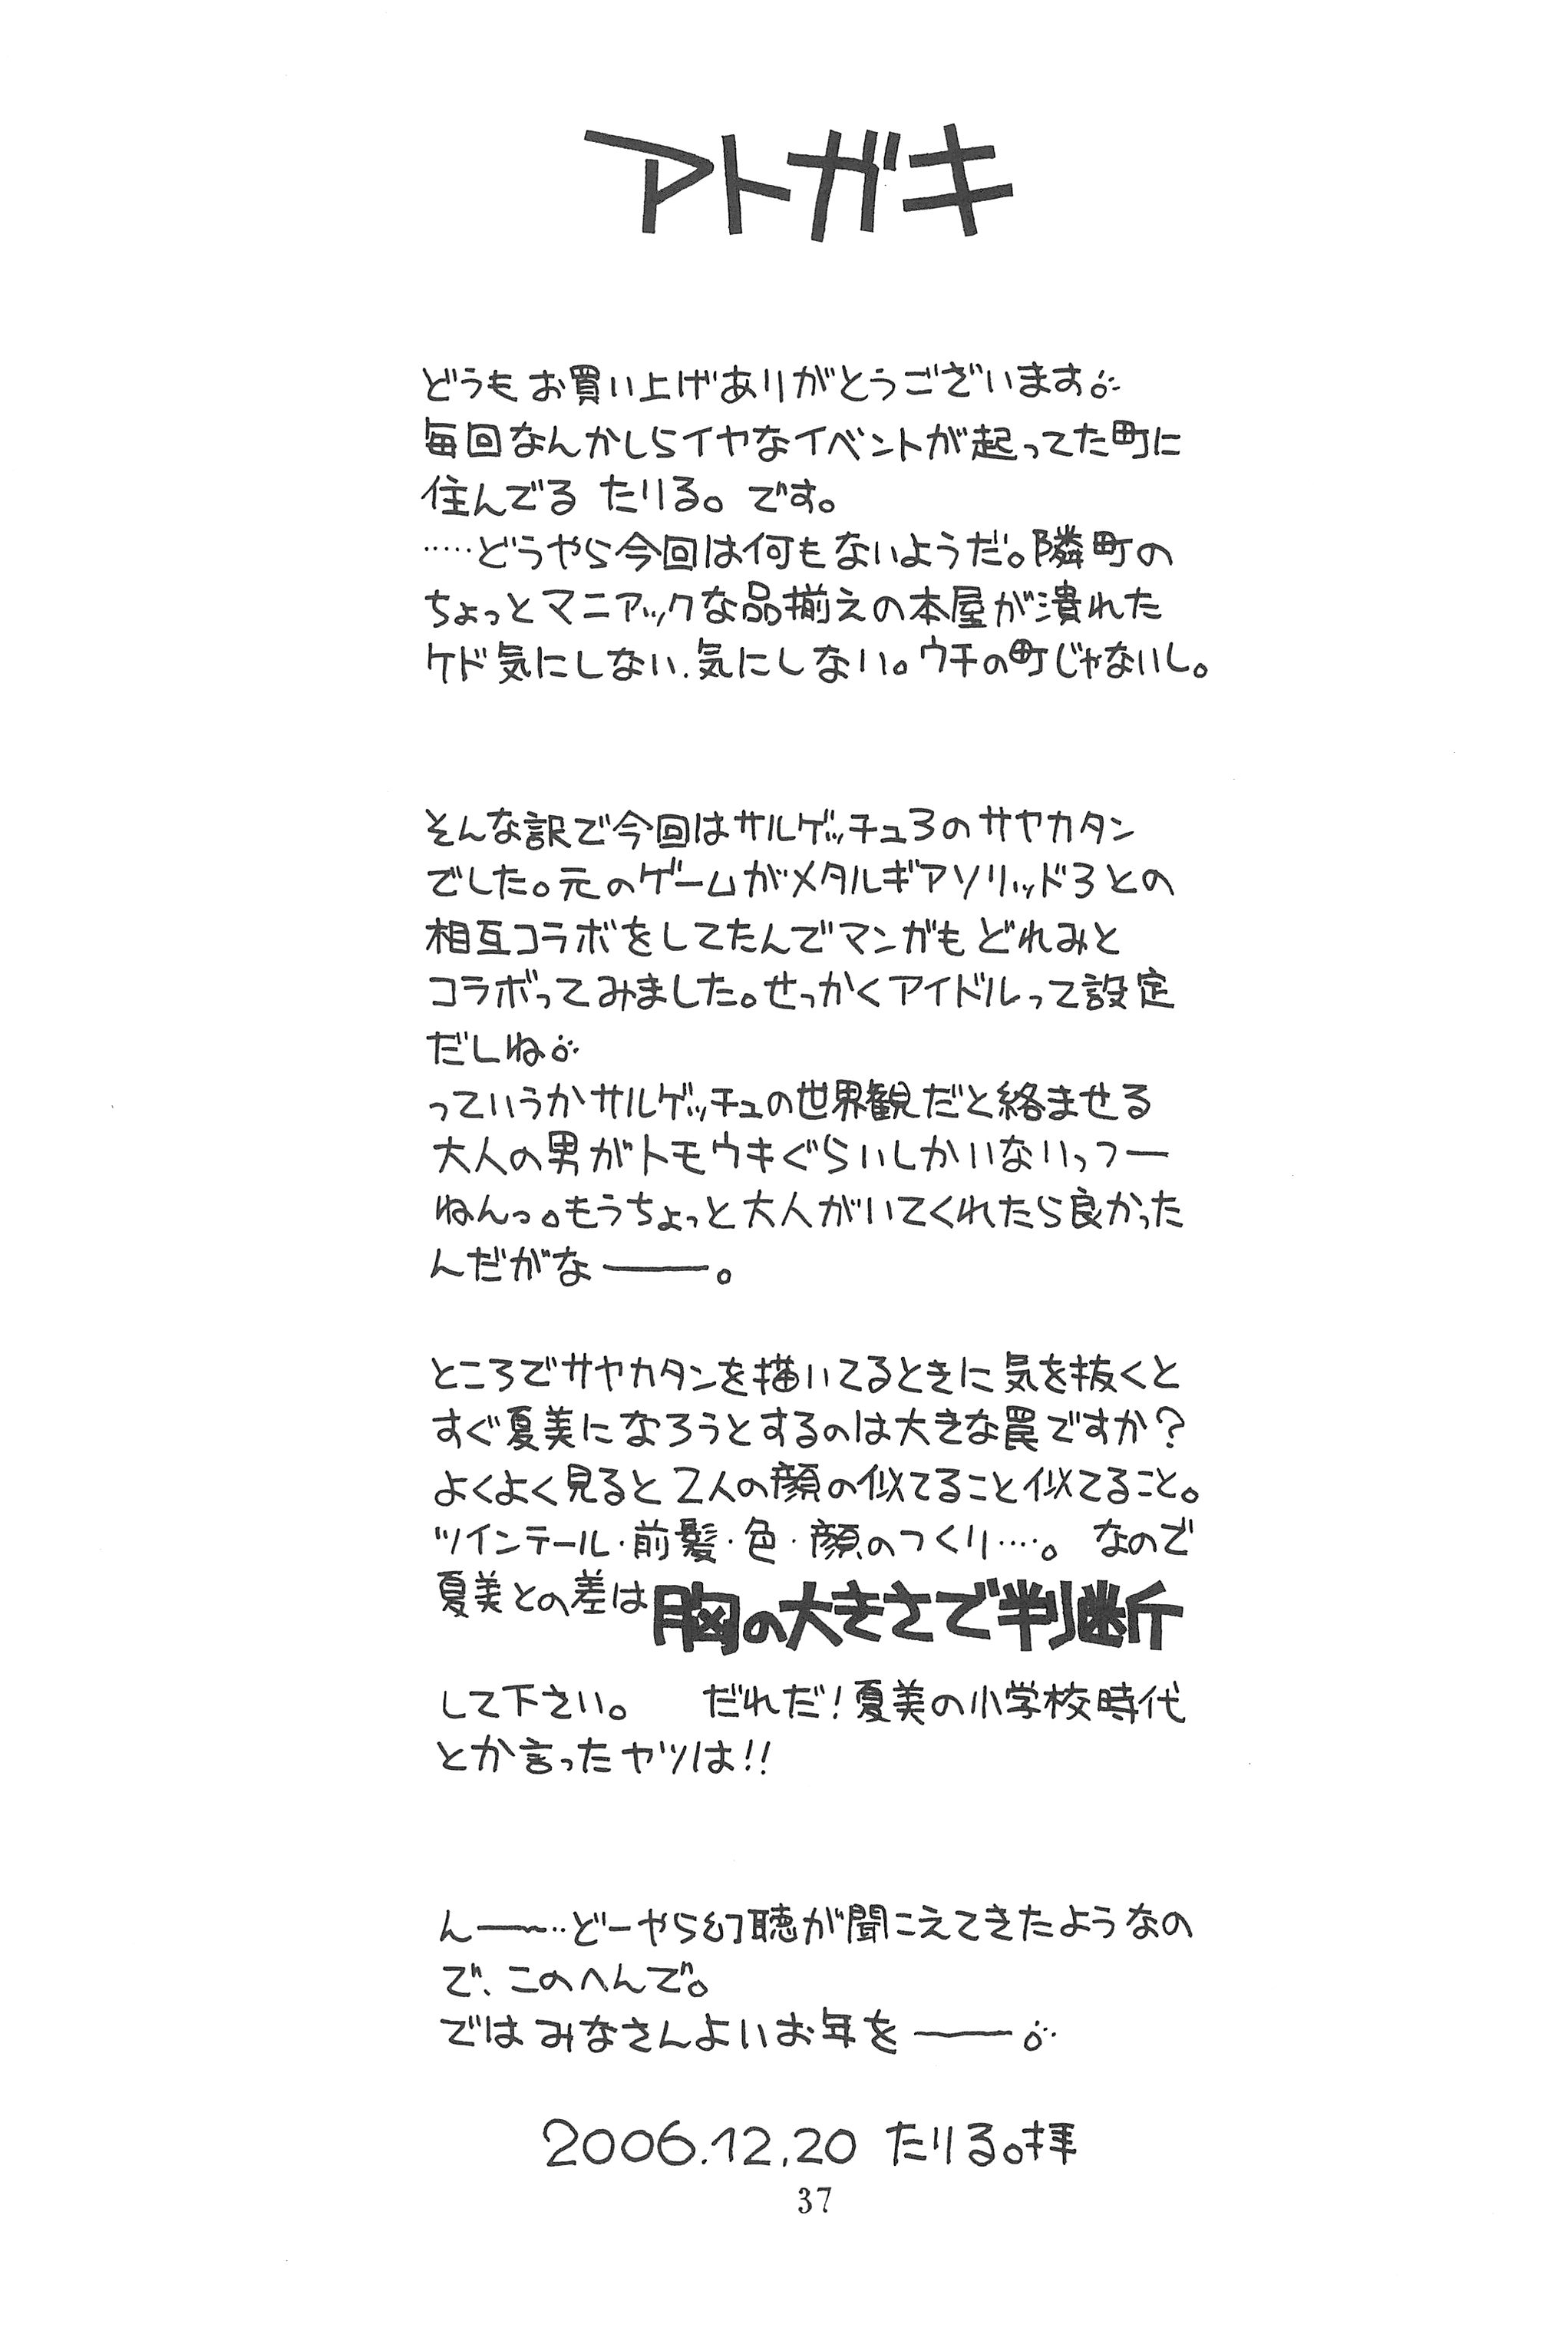 アトガキ
どうもお買い上げありがとうございます。
毎回なんかしらイヤなイベントが起ってた町に
住んでる たりる。です。
……どうやら今回は何もないようだ。隣町の
ちょっとマニアックな品揃えの本屋が潰れた
ケド気にしない、気にしない。ウチの町じゃないし。
そんな訳で今回はサルゲッチュ3のサヤカタン
でした。元のゲームがメタルギアソリッド3との
相互コラボをしてたんでマンガもどれみと
コラボってみました。せっかくアイドルって設定
だしね。
っていうかサルゲッチュの世界観だと絡ませる
大人の男がトモウキぐらいしかいないっつー
ねんっ。もうちょっと大人がいてくれたら良かった
んだがな――。
ところでサヤカタンを描いてるときに気を抜くと
すぐ夏美になろうとするのは大きな罠ですか？
よくよく見ると2人の顔の似てること似てること。
ツインテール・前髪・色・顔のつくり…。 なので
夏美との差は胸の大きさで判断
して下さい。 だれだ！夏美の小学校時代
とか言ったヤツは!!
ん――…どーやら幻聴が聞こえてきたようなの
で、このへんで。
ではみなさんよいお年を――。
2006.12.20 たりる。拝
37